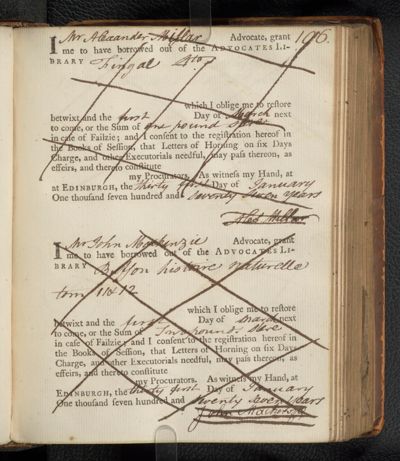 I Mr Alexander Millar Advocate, grant 196.
me to have borrowed out of the ADVOCATES LI-
BRARY Fingal 4to
which I oblige me to restore
betwixt and the first Day of March next
to come, or the Sum of one pound Ster:
in case of Failzie; and I consent to the registration hereof in
the Books of Session, that Letters of Horning on six Days
Charge, and other Executorials needful, may pass thereon, as
effeirs, and thereto constitute
my Procurators. As witness my Hand, at
at EDINBURGH, the thirty first Day of January
One thousand seven hundred and seventy seven years
Alex Millar
I Mr John Mackenzie Advocate, grant
me to have borrowed out of the ADVOCATES LI-
BRARY Buffon histoire naturelle
tom 11 & 12
which I oblige me to restore
betwixt and the first Day of March next
to come, or the Sum of Two pounds Ster
in case of Failzie; and I consent to the registration hereof in
the Books of Session, that Letters of Horning on six Days
Charge, and other Executorials needful, may pass thereon, as
effeirs, and thereto constitute
my Procurators. As witness my Hand, at
EDINBURGH, the thirty first Day of January
One thousand seven hundred and seventy seven years
John Mackenzie